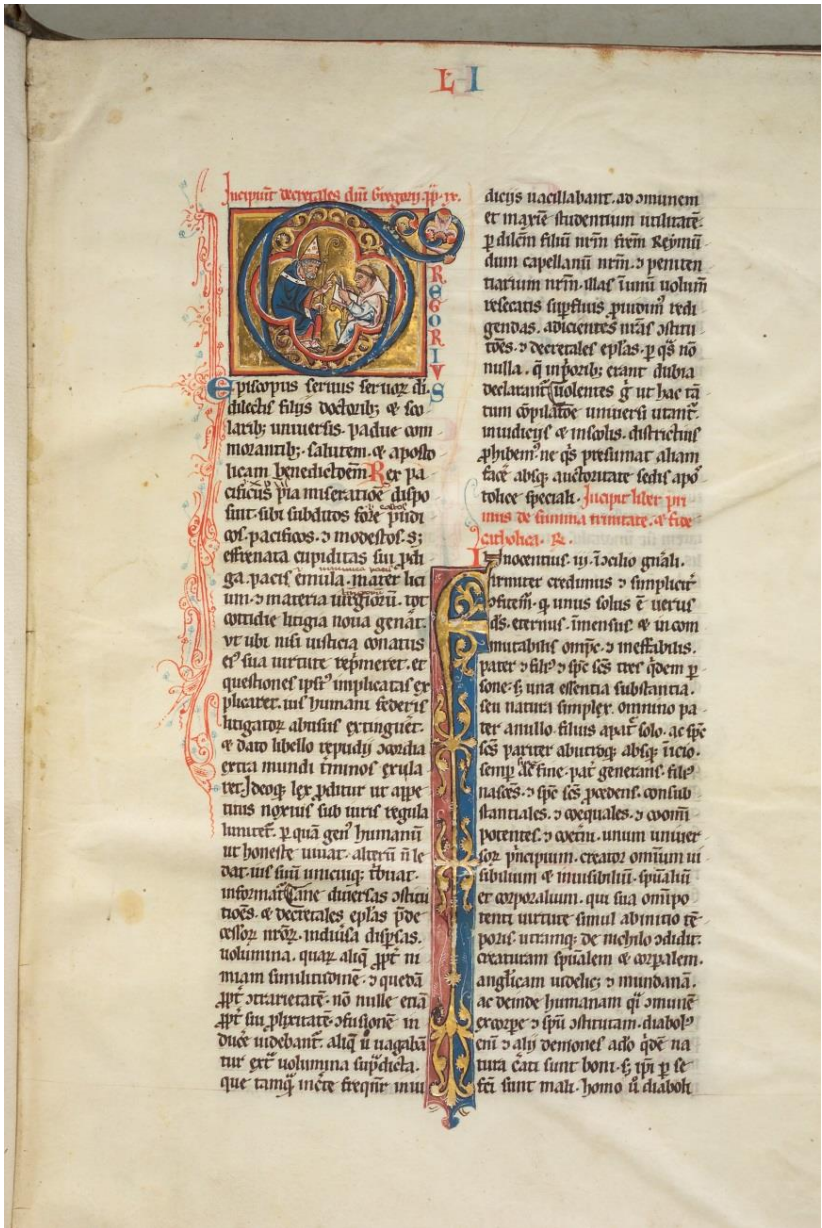 L I
Incipiūt decretales dm̄ Gregorij ꝓp̄ ix.
GREGORIVS
Episcopus seruus seruoꝝ di.
dilectis filijs doctoribꝫ & sco
laribꝫ uniuersis. padue com
morantibꝫ. salutem. & aposto
licam benedictōem Rex pa
cificus pia miseratiōe dispo
suit. sibi subditos fore pudi
cos. pacificos. ⁊ modestos. sꝫ
effrenata cupiditas sui ꝓdi
ga. pacis emula. mater liti
um. ⁊ materia iurgiorū. tot
cottidie litigia noua genāt.
vt ubi nisi iusticia conatus
eiꝰ sua uirtute rep̄meret. et
questiones ipsiꝰ implicatas ex
plicaret. ius humani federis
litigatoꝝ abusus extingueret.
& dato libello repudij ɔcordia
extra mundi t̄minos exula
ret. Ideoqꝫ lex ꝓditur ut appe
titus noxius sub iuris regula
limitet̄. ꝑ quā genꝰ humanū
ut honeste uiuat. alterū n̄ le
dat. ius suū unicuiqꝫ t̄buat.
informat̄ Sane diuersas ɔstitu
tiōes. & decretales ep̄las p̄de
cessoꝝ nr̄oꝝ. in diuersa disp̄sas.
uolumina. quaꝝ aliq̄ ꝓpt̄ ni
miam similitudinē. ⁊ quedā
ꝓpt̄ ɔtrarietatē. nō nulle etiā
ꝓpt̄ sui ꝓlixitatē. ɔfusionē in
duce uidebant̄. aliq̄ ū uagabā
tur ext̄ uolumina sup̄dicta.
que tamq̄ incerte freqn̄t̄ in iu
dicijs uacillabant. ad ɔmunem
et maxīe studentium utilitatē.
ꝑ dilc̄m filiū nr̄m frēm Reymū
dum capellanū nr̄m. ⁊ peniten
tiarium nr̄m. illas ī unū uolum̄
resecatis suꝑfluis ꝓuidim̄ redi
gendas. adicientes nr̄as ɔstitu
tōes. ⁊ decretales ep̄las. ꝑ q̄s nō
nulla. q̄ in p̄oribꝫ erant dubia
declarant̄ Uolentes g̊ ut hac tā
tum cōpilatōe uniuersi utant̄.
in iudicijs & in scolis. districtius
ꝓhibemꝰ ne q̄s presumat aliam
face absqꝫ auctoritate sedis apo
tolice speciali. Incipit liber pri
mus de summa trinitate. & fide
catholica. R.
Innocentius. iij. ī ɔcilio gn̄ali.
Firmiter credimus ⁊ simplicit̄
ɔfitem̄. q̄ unus solus ē uerus
ds̄. eternus. īmensus & incom
mutabilis omp̄s ⁊ ineffabilis.
pater ⁊ filiꝰ ⁊ sp̄c sc̄s tres q̄dem ꝑ
sone. sꝫ una essentia substantia.
seu natura simplex omnino pa
ter a nullo filius a pat̄ solo. ac sp̄c
sc̄s pariter ab utroqꝫ absqꝫ īicio.
semꝑ ac fine. pat̄ generans. filiꝰ
nascēs. ⁊ sp̄c sc̄s ꝓcedens. consub
stantiales. ⁊ coequales. ⁊ coomi
potentes. ⁊ coet̄ni. unum uniuer
soꝝ p̄ncipium. creator omīum ui
sibilium & inuisibiliū. sp̄ualiū
et corporalium. qui sua omīpo
tenti uirtute simul ab initio tē
poris. utramqꝫ de nichilo ɔdidit.
creaturam sp̄ualem & corꝑalem.
angl̄icam uidelicꝫ ⁊ mundanā.
ac deinde humanam q̄i ɔmunē
ex corꝑe ⁊ sp̄u ɔstitutam. diabolꝰ
enī ⁊ alij demones a dō q̄dē na
tura c̄ati sunt boni. sꝫ ip̄i ꝑ se
fc̄i sunt mali. homo ū diaboli